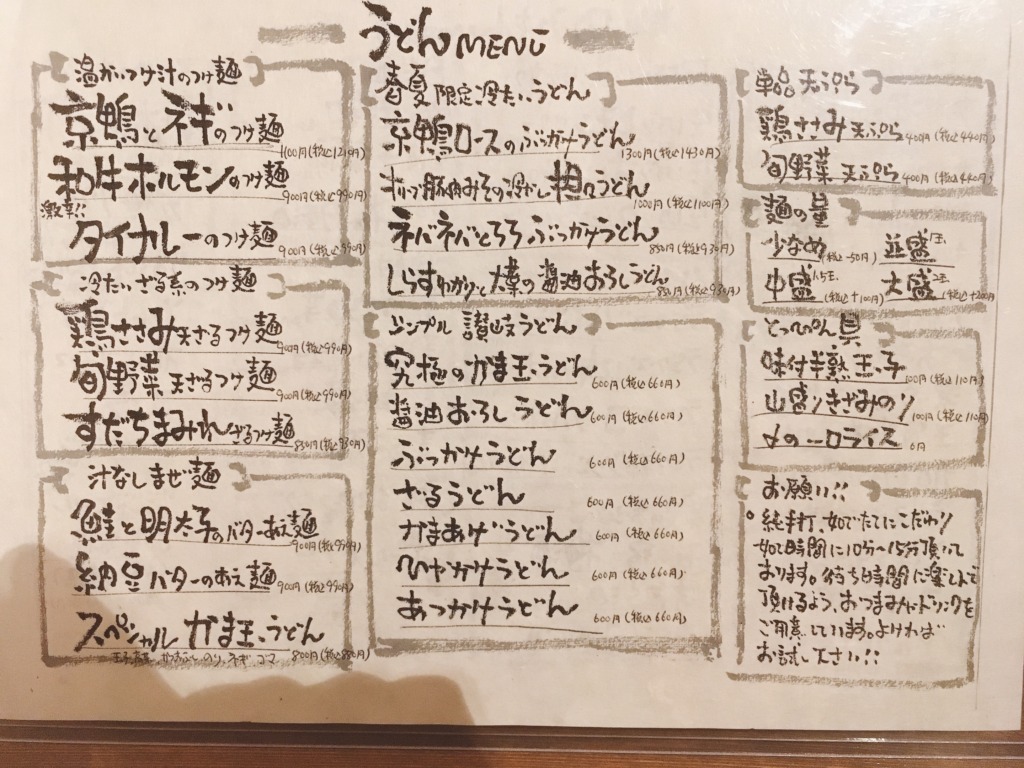 うどんMENU
温かいつけ汁のつけ麺
京鴨とネギのつけ麺
1100円(税込1210円)
和牛ホルモンのつけ麺
900円(税込990円)
激辛!!
タイカレーのつけ麺
900円(税込990円)
冷たいざる系のつけ麺
鶏ささみ天ざるつけ麺
900円(税込990円)
旬野菜天ざるつけ麺
900円(税込990円)
すだちまみれざるつけ麺
850円(税込930円)
汁なしまぜ麺
鮭と明太子のバターあえ麺
900円(税込990円)
納豆バターのあえ麺
900円(税込990円)
スペシャルかま玉うどん
800円(税込880円)
のり、ネギ、ゴマ
春夏限定冷たいうどん
京鴨ロースのぶっかけうどん
1300円(税込1430円)
豚肉みその冷やし担々うどん
1000円(税込1100円)
ネバネバとろろぶっかけうどん
850円(税込930円)
しらすわかめと大葉の醤油おろしうどん
850円(税込930円)
シンプル讃岐うどん
究極のかま玉うどん
600円(税込660円)
醤油おろしうどん
600円(税込660円)
ぶっかけうどん
600円(税込660円)
ざるうどん
600円(税込660円)
かまあげうどん
600円(税込660円)
ひやかけうどん
600円(税込660円)
あつかけうどん
600円(税込660円)
単品天ぷら
鶏ささみ天ぷら
400円(税込440円)
旬野菜天ぷら
400円(税込440円)
麺の量
少なめ(税込-50円) 並盛1玉
中盛1.5玉(税込+100円) 大盛2玉(税込+200円)
とっぴんぐ具
味付半熟玉子
100円(税込110円)
山盛りきざみのり
100円(税込110円)
〆の一口ライス 0円
お願い!!
純手打、茹でたてにこだわり
茹で時間に10分〜15分頂いて
おります。待ち時間に楽しんで
頂けるよう、おつまみやドリンクを
ご用意しています。よければ
お試し下さい!!